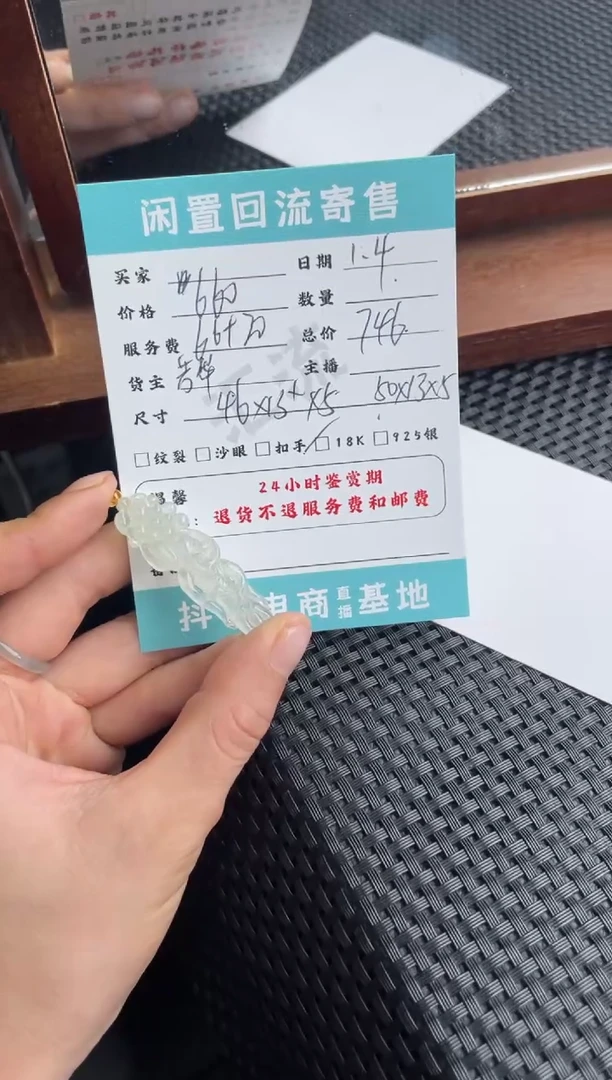 闲置回流寄售
买家 日期 1.4
价格 660 数量 1.
服务费 66+20 总价 746.
货主 主播
尺寸 46×13×5 50×13×5
纹裂 沙眼 扣手 18K 925银
温馨 24小时鉴赏期
: 退货不退服务费和邮费
抖 电商 直播 基地